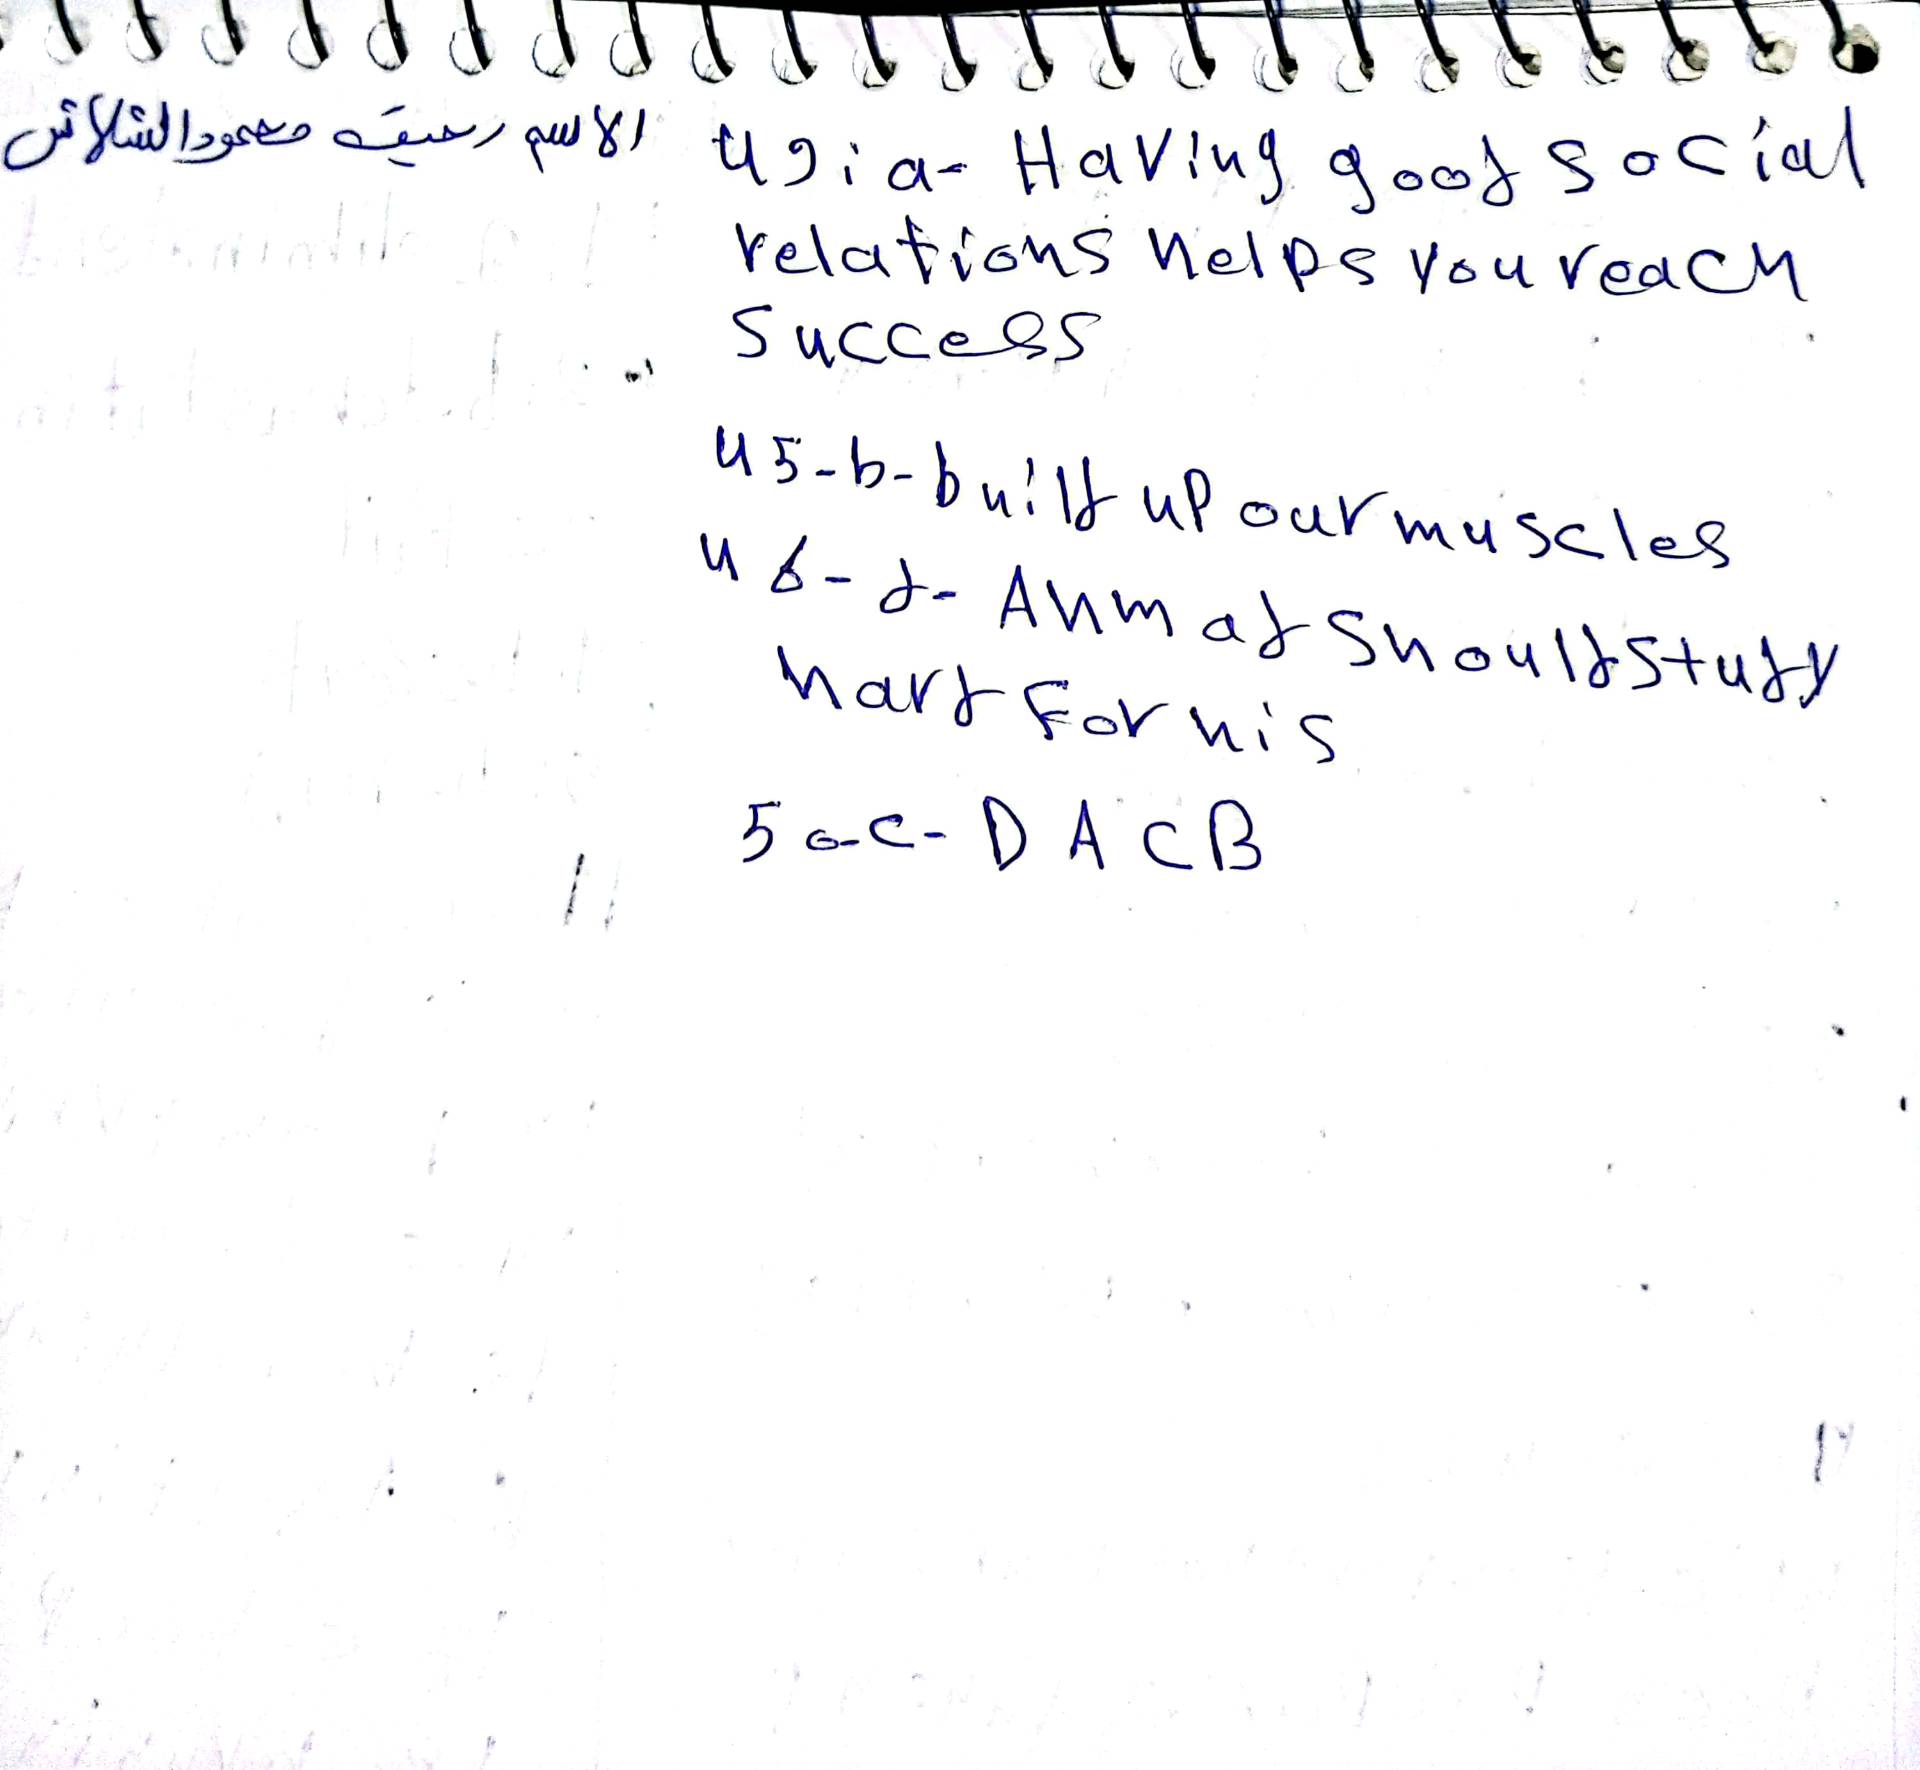 49: a- Having good social
relations helps you reach
success
45-b-build up our muscles
46-d-Ahmad should study
hard for his
50-c-D A C B
الاسم